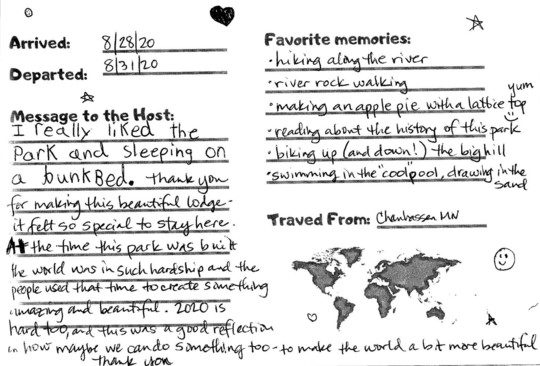 Arrived: 8/28/20
Departed: 8/31/20
Message to the Host:
I really liked the
Park and sleeping on
a bunkBed. Thank you
for making this beautiful lodge-
it felt so special to stay here.
At the time this park was built
the world was in such hardship and the
people used that time to create something
amazing and beautiful. 2020 is
hard too, and this was a good reflection
on how maybe we can do something too - to make the world a bit more beautiful
Thank you
Favorite memories:
• hiking along the river
• river rock walking
• making an apple pie with a lattice top yum
• reading about the history of this park
• biking up (and down!) the big hill
• swimming in the "cool" pool, drawing in the
sand
Traved From: Chanhassen MN